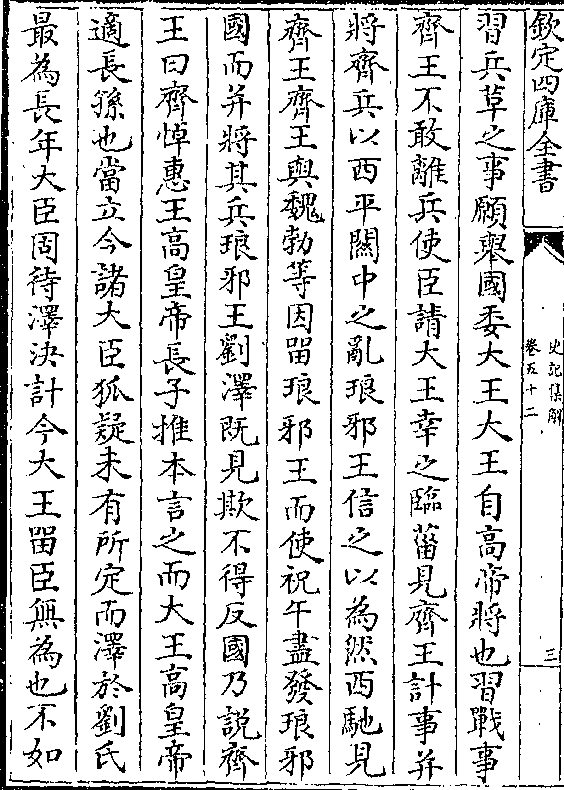 欽定四庫全書
史記集解
卷五十二
三
習兵革之事願舉國委大王大王自高帝將也習戰事
齊王不敢離兵使臣請大王幸之臨菑見齊王計事并
將齊兵以西平關中之亂琅邪王信之以為然西馳見
齊王齊王與魏勃等因留琅邪王而使祝午盡發琅邪
國而并將其兵琅邪王劉澤既見欺不得反國乃說齊
王曰齊悼惠王高皇帝長子推本言之而大王高皇帝
適長孫也當立今諸大臣狐疑未有所定而澤於劉氏
最為長年大臣固待澤決計今大王留臣無為也不如